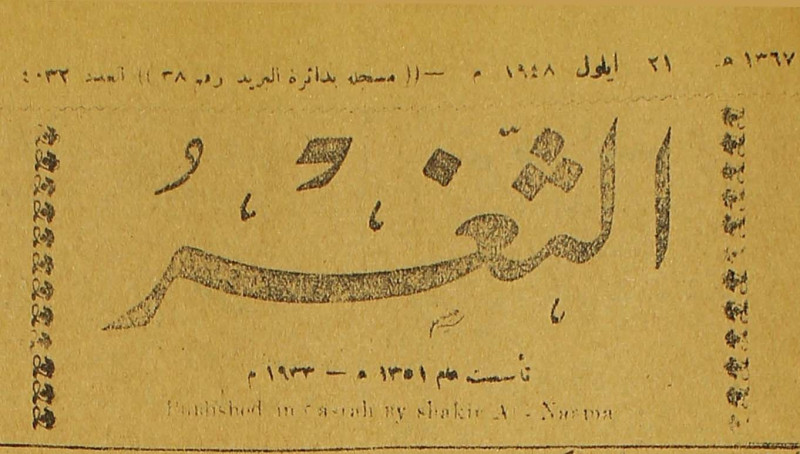 ١٣٦٧ هـ ٢١ ايلول ١٩٤٨ م —(( مسجلة بدائرة البريد رقم ٣٨ )) العدد ٤٠٣٢
الثَّغْرُ
تأسست عام ١٣٥١ هـ — ١٩٣٣ م
Published in Basrah By Shakir Al - Naama